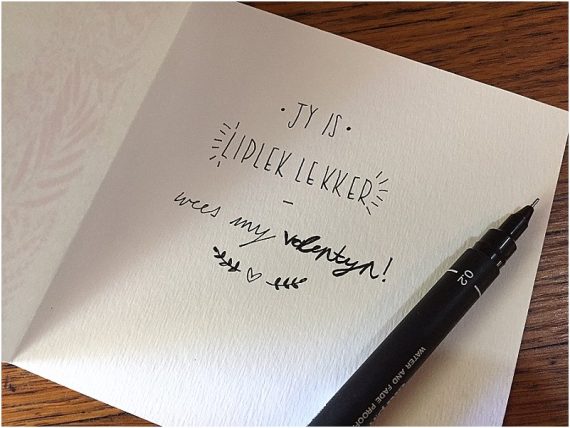 • JY IS •
LIPLEK LEKKER
–
wees my valentyn!
0.2
WATER AND FADE PROOF